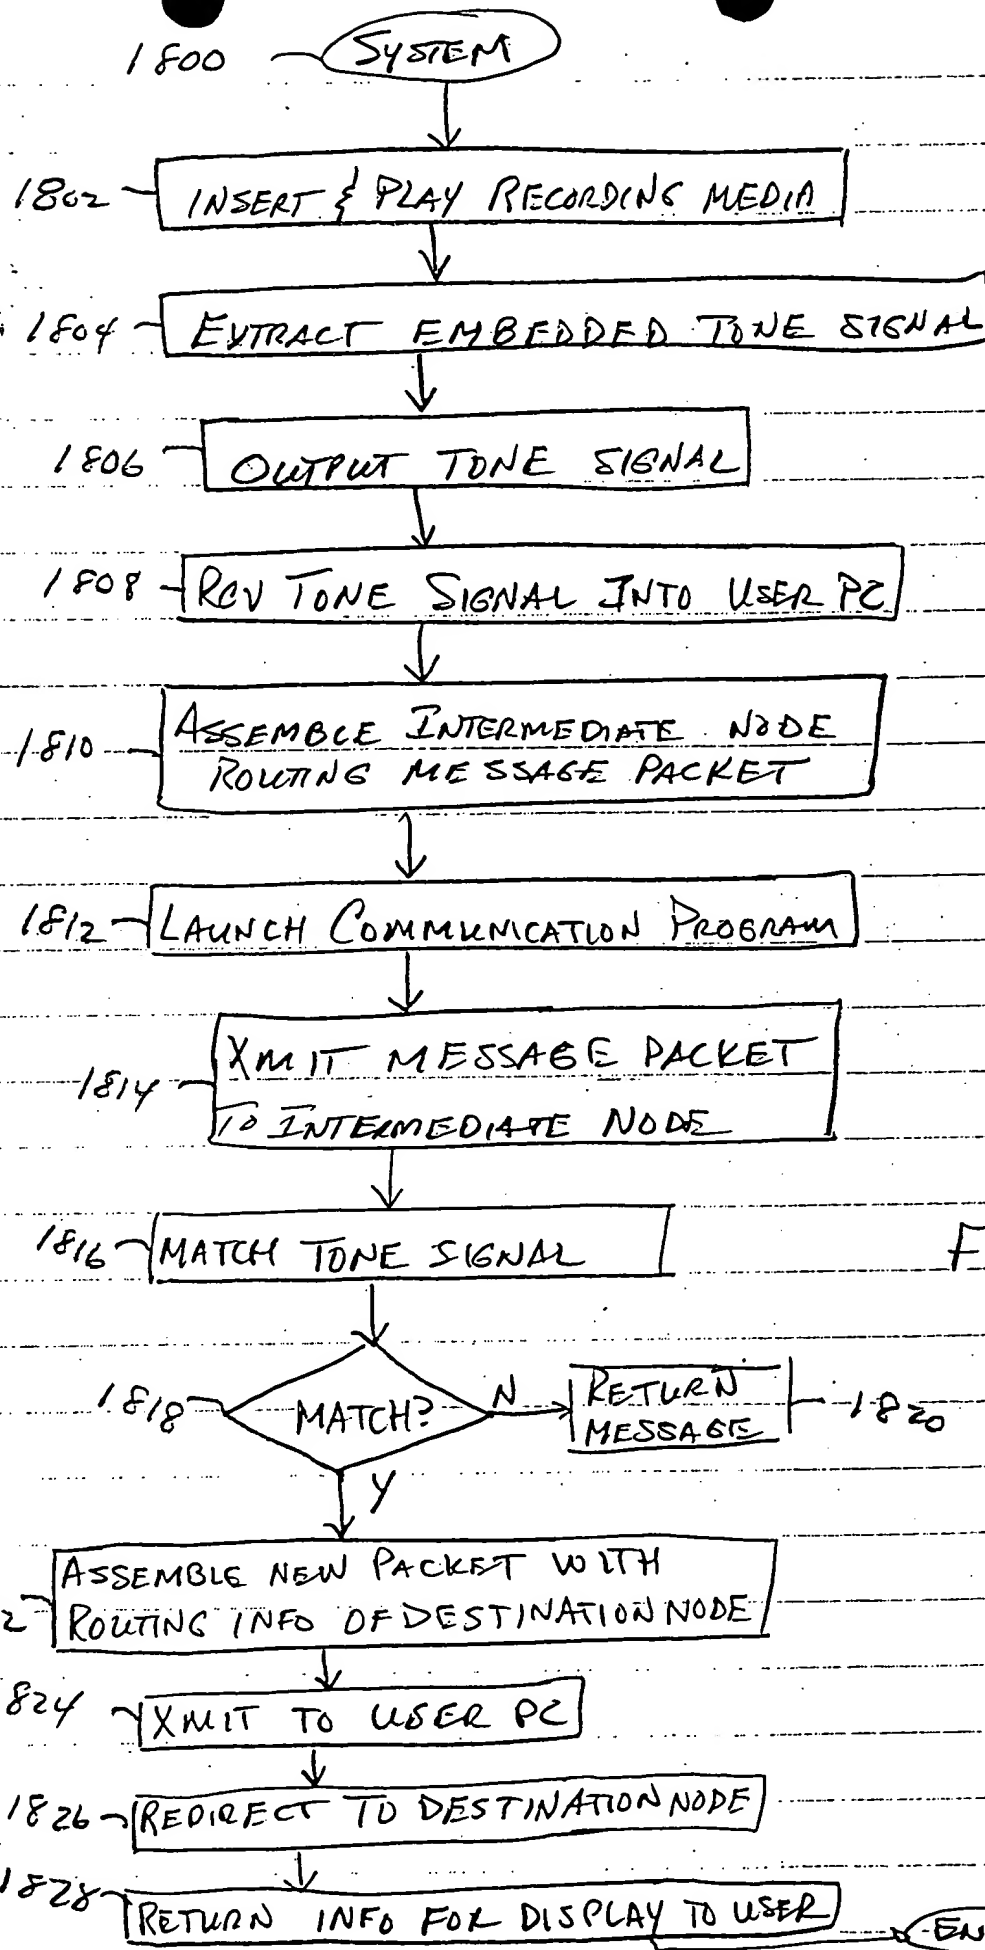 1800 SYSTEM
1802 INSERT & PLAY RECORDING MEDIA
1804 EXTRACT EMBEDDED TONE SIGNAL
1806 OUTPUT TONE SIGNAL
1808 RCV TONE SIGNAL INTO USER PC
ASSEMBLE INTERMEDIATE NODE
1810 ROUTING MESSAGE PACKET
1812 LAUNCH COMMUNICATION PROGRAM
XMIT MESSAGE PACKET
1814 TO INTERMEDIATE NODE
1816 MATCH TONE SIGNAL
F
1818 MATCH? N
RETURN
MESSAGE
1820
Y
ASSEMBLE NEW PACKET WITH
2 ROUTING INFO OF DESTINATION NODE
824 XMIT TO USER PC
1826 REDIRECT TO DESTINATION NODE
1828 RETURN INFO FOR DISPLAY TO USER
EN